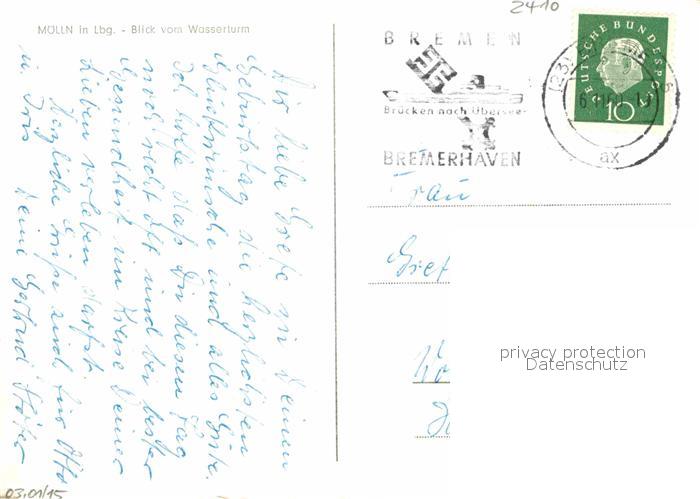 2410
MÖLLN in Lbg. - Blick vom Wasserturm
BREMEN
Brücken nach Übersee
BREMERHAVEN
DEUTSCHE BUNDESPOST
10
ax
Dir liebe Grete zu Deinem
Geburtstag die herzlichsten
Glückwünsche und alles Gute.
Ich hoffe daß Du diesen Tag
noch recht oft und bei bester
Gesundheit im Kreise Deiner
Lieben verleben darfst.
Herzliche Grüße auch für Otto
u. Deine Gertrud
Frau
Gret
privacy protection
Datenschutz
03.01/15